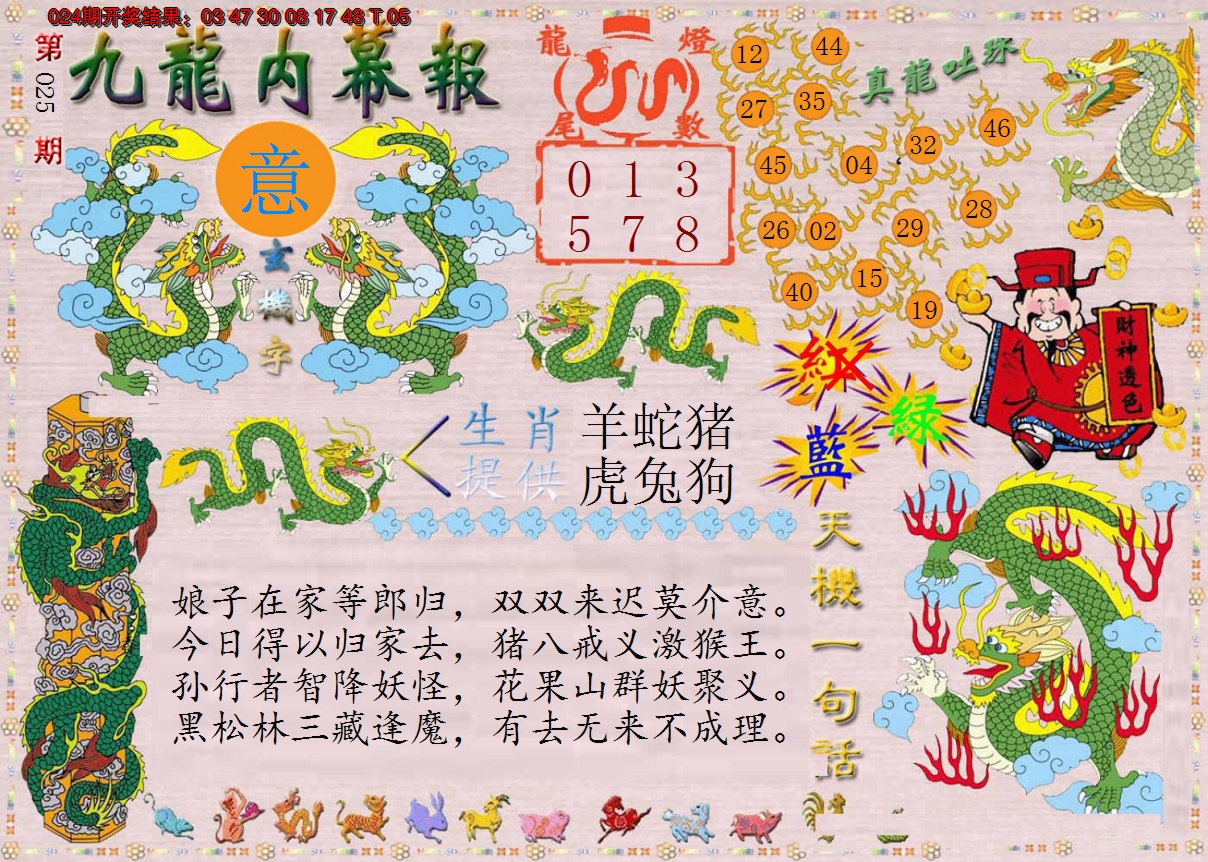 024期开奖结果：03 47 30 08 17 48 T 05
第025期
九龍内幕報
意
玄機字
龍燈
尾數
0 1 3
5 7 8
真龍吐珠
12 44
27 35
45 04 32 46
26 02 29 28
40 15 19
紅
綠
藍
財神透色
生肖
提供
羊蛇猪
虎兔狗
天機一句话
娘子在家等郎归，双双来迟莫介意。
今日得以归家去，猪八戒义激猴王。
孙行者智降妖怪，花果山群妖聚义。
黑松林三藏逢魔，有去无来不成理。